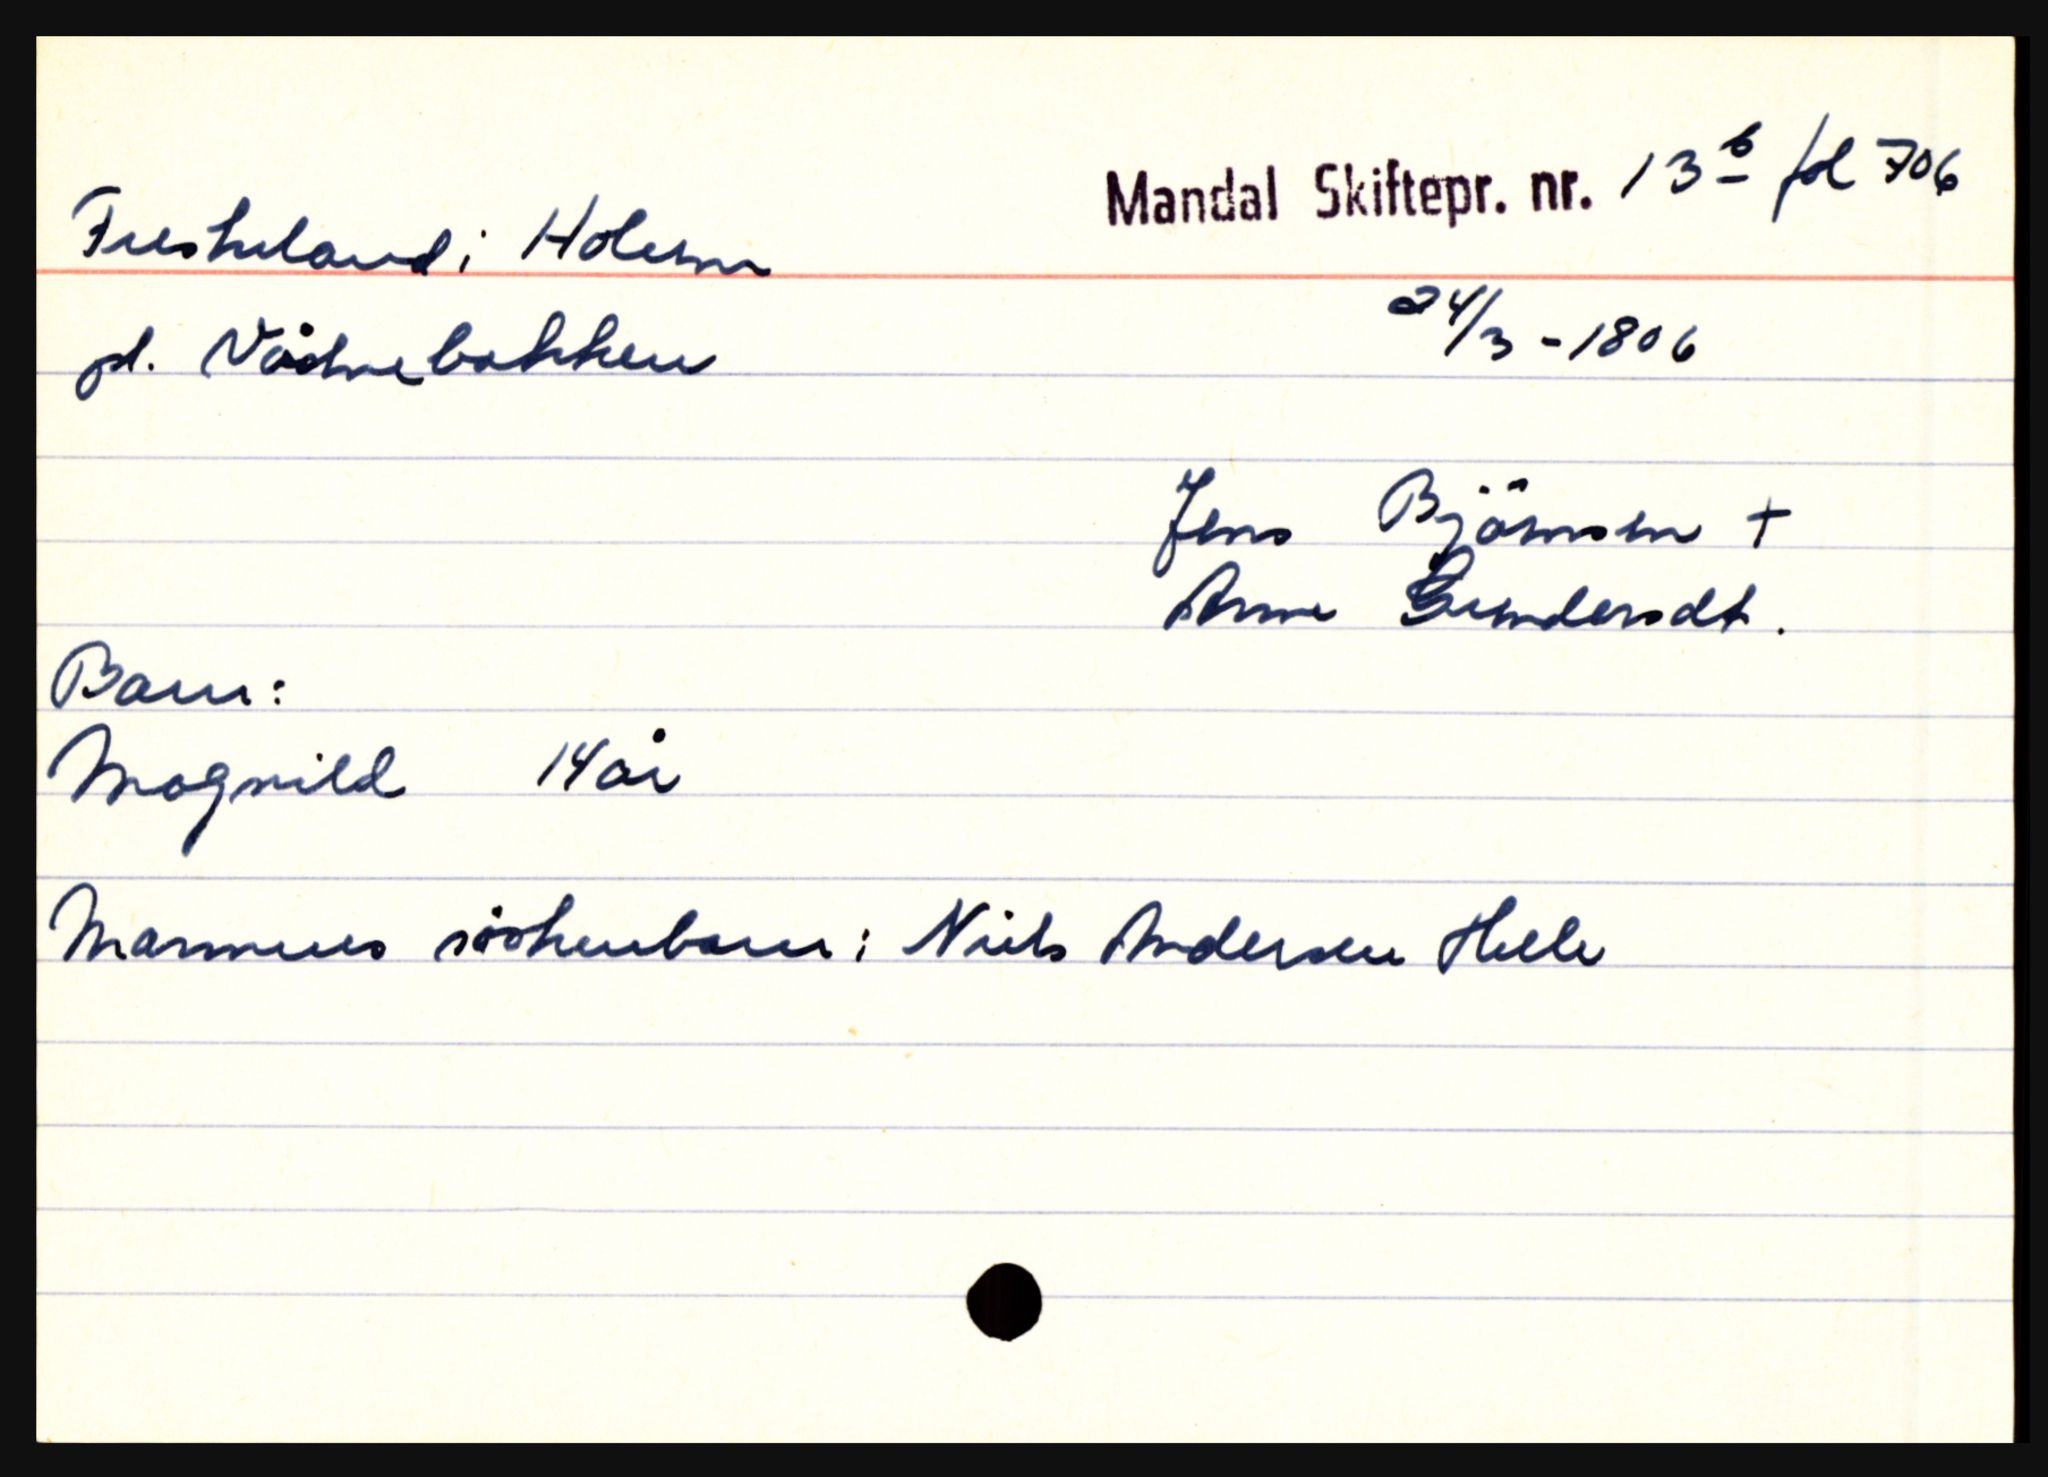 Mandal Skiftepr. nr. 13 b fol 706
Fuskeland i Holum
pl. Vådnebakken 24/3 - 1806
Jens Björnsen +
Anne Gundersdt.
Barn:
Magnild 14 år
Mannens söskenbarn: Niels Andersen Helle